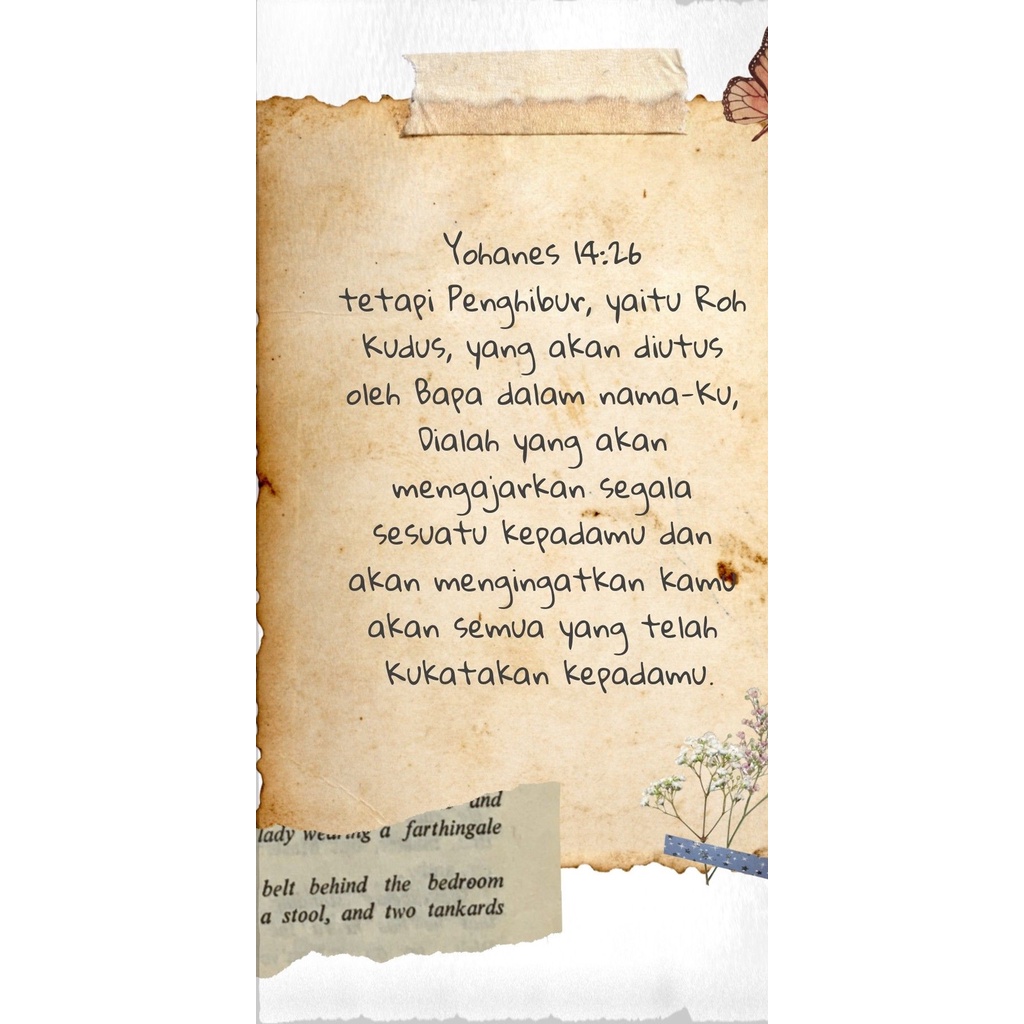 Yohanes 14:26
tetapi Penghibur, yaitu Roh
Kudus, yang akan diutus
oleh Bapa dalam nama-Ku,
Dialah yang akan
mengajarkan segala
sesuatu kepadamu dan
akan mengingatkan kamu
akan semua yang telah
Kukatakan kepadamu.
and
lady wearing a farthingale
belt behind the bedroom
a stool, and two tankards